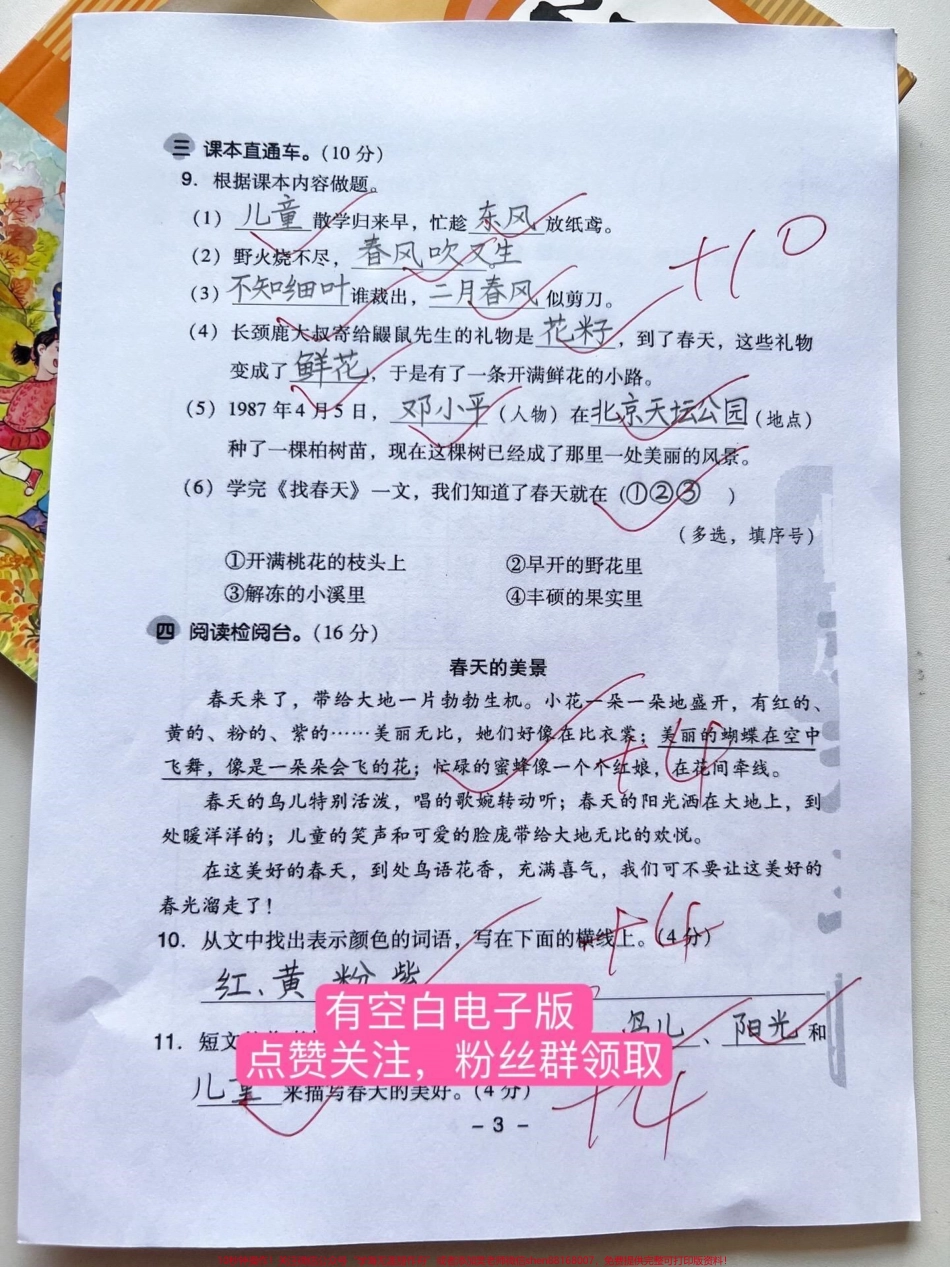 三 课本直通车。(10 分)
9. 根据课本内容做题。
(1) 儿童散学归来早，忙趁东风放纸鸢。
(2) 野火烧不尽，春风吹又生。
(3) 不知细叶谁裁出，二月春风似剪刀。
(4) 长颈鹿大叔寄给鼹鼠先生的礼物是花籽，到了春天，这些礼物
变成了鲜花，于是有了一条开满鲜花的小路。
(5) 1987 年4月5日，邓小平(人物)在北京天坛公园(地点)
种了一棵柏树苗，现在这棵树已经成了那里一处美丽的风景。
(6) 学完《找春天》一文，我们知道了春天就在(①②③)
(多选，填序号)
①开满桃花的枝头上 ②早开的野花里
③解冻的小溪里 ④丰硕的果实里
+10
四 阅读检阅台。(16 分)
春天的美景
春天来了，带给大地一片勃勃生机。小花一朵一朵地盛开，有红的、
黄的、粉的、紫的……美丽无比，她们好像在比衣裳；美丽的蝴蝶在空中
飞舞，像是一朵朵会飞的花；忙碌的蜜蜂像一个个红娘，在花间牵线。
+4
春天的鸟儿特别活泼，唱的歌婉转动听；春天的阳光洒在大地上，到
处暖洋洋的；儿童的笑声和可爱的脸庞带给大地无比的欢悦。
在这美好的春天，到处鸟语花香，充满喜气，我们可不要让这美好的
春光溜走了！
10. 从文中找出表示颜色的词语，写在下面的横线上。(4 分)
+4
红、黄 粉 紫
有空白电子版
11. 短文 鸟儿、阳光和
点赞关注，粉丝群领取
儿童来描写春天的美好。(4 分)
+4
- 3 -